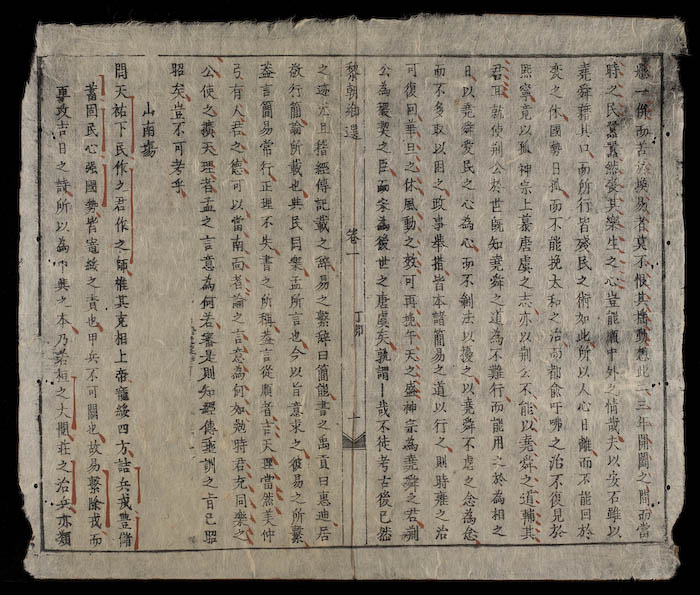 時之民囂囂然喪其樂生之心豈能順中外之情哉夫以安石雖以
堯舜藉其口而所行皆殘民之術如此所以人心日離而不能回於
之休國勢日孤而不能挽太和之治而都俞吁咈之治不復見於
熙寧竟以狐神宗上慕唐虞之志亦以荆公不能以堯舜之道輔其
君耳就使荆公於世既知堯舜之道為不難行而能用之於為相之
日以堯舜愛民之心為心而不制法以擾之以堯舜不虐之念為念
而不多取以困之政事舉措皆本諸簡易之道以行之則時雍之治
可復回華旦之休風動之效可再挽午天之盛神宗為堯舜之君荆
公為稷契之臣而宋為後世之唐虞矣孰謂一哉不徒考古後已然
黎朝 選 卷一 丁卯 一
之迹尤且稽經傳記載之辭易之繫辭曰簡能書之禹貢曰惠迪居
敬行簡論所載也與民同樂孟所言也今以旨意求之彼易之所繫
蓋言簡易常行正理不失書之所稱蓋言從順者吉天理當然美仲
弓有人君之德可以當南面者論之言意為何如勉時君充同樂之
公使之擴天理者孟之言意為何若審是則知經傳垂訓之旨已昭
昭矣豈不可考乎
山南塲
問天祐下民作之君作之師惟其克相上帝寵綏四方詰兵戎豐儲
蓄固民心強國勢皆寵綏之責也甲兵不可關也故易繫除戎而
車攻吉日之詩所以為中興之本乃若桓之大閱莊之治兵亦類